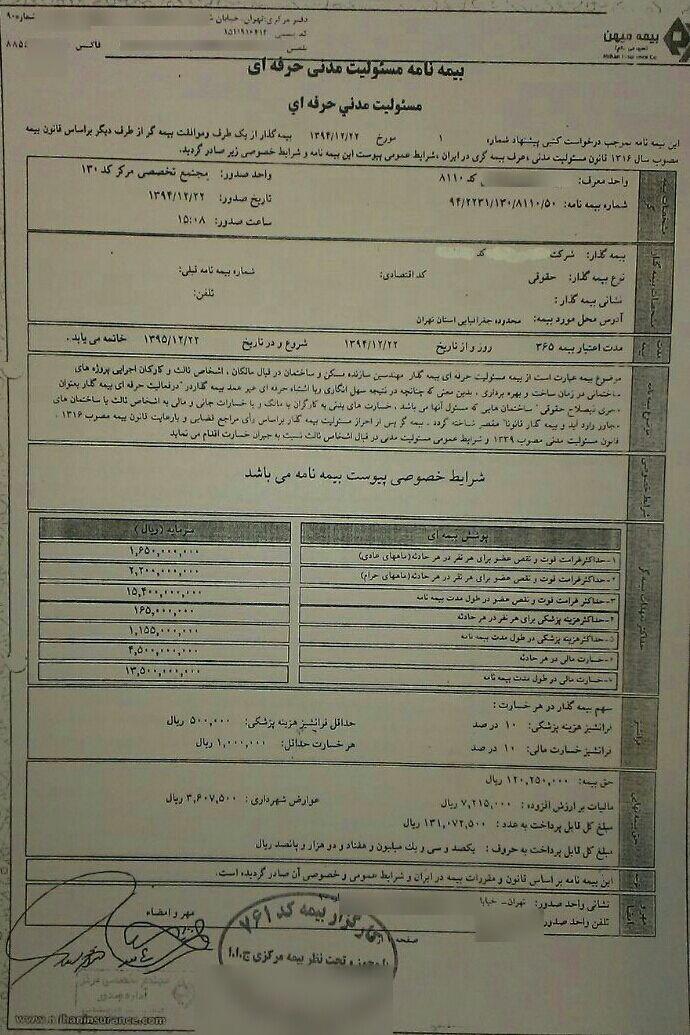 دفتر مرکزی: تهران، خیابان
کد پستی ۱۵۱۱۹۱۰۴۱۲
تلفن
فاکس
بیمه میهن
بیمه نامه مسئولیت مدنی حرفه ای
مسئولیت مدني حرفه اي
این بیمه نامه بموجب درخواست کتبی پیشنهاد شماره ۱ مورخ ۱۳۹۴/۱۲/۲۲ بیمه گذار از یک طرف وموافقت بیمه گر از طرف دیگر براساس قانون بیمه
مصوب سال ۱۳۱۶ قانون مسئولیت مدنی ،عرف بیمه گری در ایران ،شرایط عمومی پیوست این بیمه نامه و شرایط خصوصی زیر صادر گردید.
واحد معرف: کد ۸۱۱۰
واحد صدور: مجتمع تخصصی مرکز کد ۱۳۰
شماره بیمه نامه: ۹۴/۲۲۳۱/۱۳۰/۸۱۱۰/۵۰
تاریخ صدور: ۱۳۹۴/۱۲/۲۲
ساعت صدور: ۱۵:۰۸
بیمه گذار: شرکت کد
نوع بیمه گذار: حقوقی کد اقتصادی: شماره بیمه نامه قبلی:
نشانی بیمه گذار: تلفن:
آدرس محل مورد بیمه: محدوده جغرافیایی استان تهران
مدت اعتبار بیمه ۳۶۵ روز و از تاریخ ۱۳۹۴/۱۲/۲۲ شروع و در تاریخ ۱۳۹۵/۱۲/۲۲ خاتمه می یابد.
موضوع بیمه عبارت است از بیمه مسئولیت حرفه ای بیمه گذار مهندسین سازنده مسکن و ساختمان در قبال مالکان ، اشخاص ثالث و کارکنان اجرایی پروژه های
ساختمانی در زمان ساخت و بهره برداری ، بدین معنی که چنانچه در نتیجه سهل انگاری ویا اشتباه حرفه ای غیر عمد بیمه گذاردر "درفعالیت حرفه ای بیمه گذار بعنوان
مجری ذیصلاح حقوقی " ساختمان هایی که مسئول آنها می باشد ، خسارت های بدنی به کارگران یا مالک و یا خسارات جانی و مالی به اشخاص ثالث یا ساختمان های
مجاور وارد آید و بیمه گذار قانونا" مقصر شناخته گردد . بیمه گر پس از احراز مسئولیت بیمه گذار براساس رأی مراجع قضایی و بارعایت قانون بیمه مصوب ۱۳۱۶ .
قانون مسئولیت مدنی مصوب ۱۳۳۹ و شرایط عمومی مسئولیت مدنی در قبال اشخاص ثالث نسبت به جبران خسارت اقدام می نماید
شرایط خصوصی پیوست بیمه نامه می باشد
پوشش بیمه ای سرمایه (ریال)
۱-حداکثرغرامت فوت و نقص عضو برای هر نفر در هر حادثه(ماههای عادی) ۱,۶۵۰,۰۰۰,۰۰۰
۲-حداکثرغرامت فوت و نقص عضو برای هر نفر در هر حادثه(ماههای حرام) ۲,۲۰۰,۰۰۰,۰۰۰
۳-حداکثر غرامت فوت و نقص عضو در طول مدت بیمه نامه ۱۵,۴۰۰,۰۰۰,۰۰۰
۴-حداکثرهزینه پزشکی برای هر نفر در هر حادثه ۱۶۵,۰۰۰,۰۰۰
۵-حداکثرهزینه پزشکی در طول مدت بیمه نامه ۱,۱۵۵,۰۰۰,۰۰۰
۶-خسارت مالی در هر حادثه ۴,۵۰۰,۰۰۰,۰۰۰
۷-خسارت مالی در طول مدت بیمه نامه ۱۳,۵۰۰,۰۰۰,۰۰۰
سهم بیمه گذار در هر خسارت :
فرانشیز هزینه پزشکی: ۱۰ در صد حداقل فرانشیز هزینه پزشکی: ۵۰۰,۰۰۰ ریال
فرانشیز خسارت مالی: ۱۰ در صد هر خسارت حداقل: ۱,۰۰۰,۰۰۰ ریال
حق بیمه: ۱۲۰,۲۵۰,۰۰۰ ریال
مالیات بر ارزش افزوده : ۷,۲۱۵,۰۰۰ ریال عوارض شهرداری : ۳,۶۰۷,۵۰۰ ریال
مبلغ کل قابل پرداخت به عدد : ۱۳۱,۰۷۲,۵۰۰ ریال
مبلغ کل قابل پرداخت به حروف : یکصد و سی و یک میلیون و هفتاد و دو هزار و پانصد ریال
این بیمه نامه بر اساس قانون و مقررات بیمه در ایران و شرایط عمومی و خصوصی آن صادر گردیده است.
نشانی واحد صدور: تهران- خیابا
تلفن واحد صدور
مهر و امضاء
صفحه ۱ از
کارگزار بیمه کد ۷۶۱
با مجوز و تحت نظر بیمه مرکزی ج.ا.ا